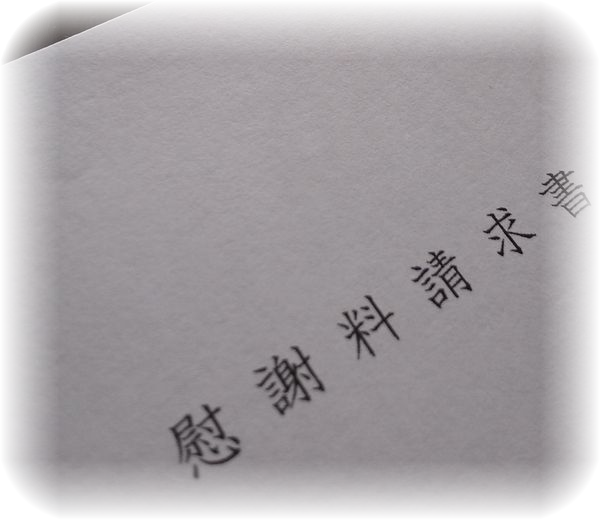 慰謝料請求書